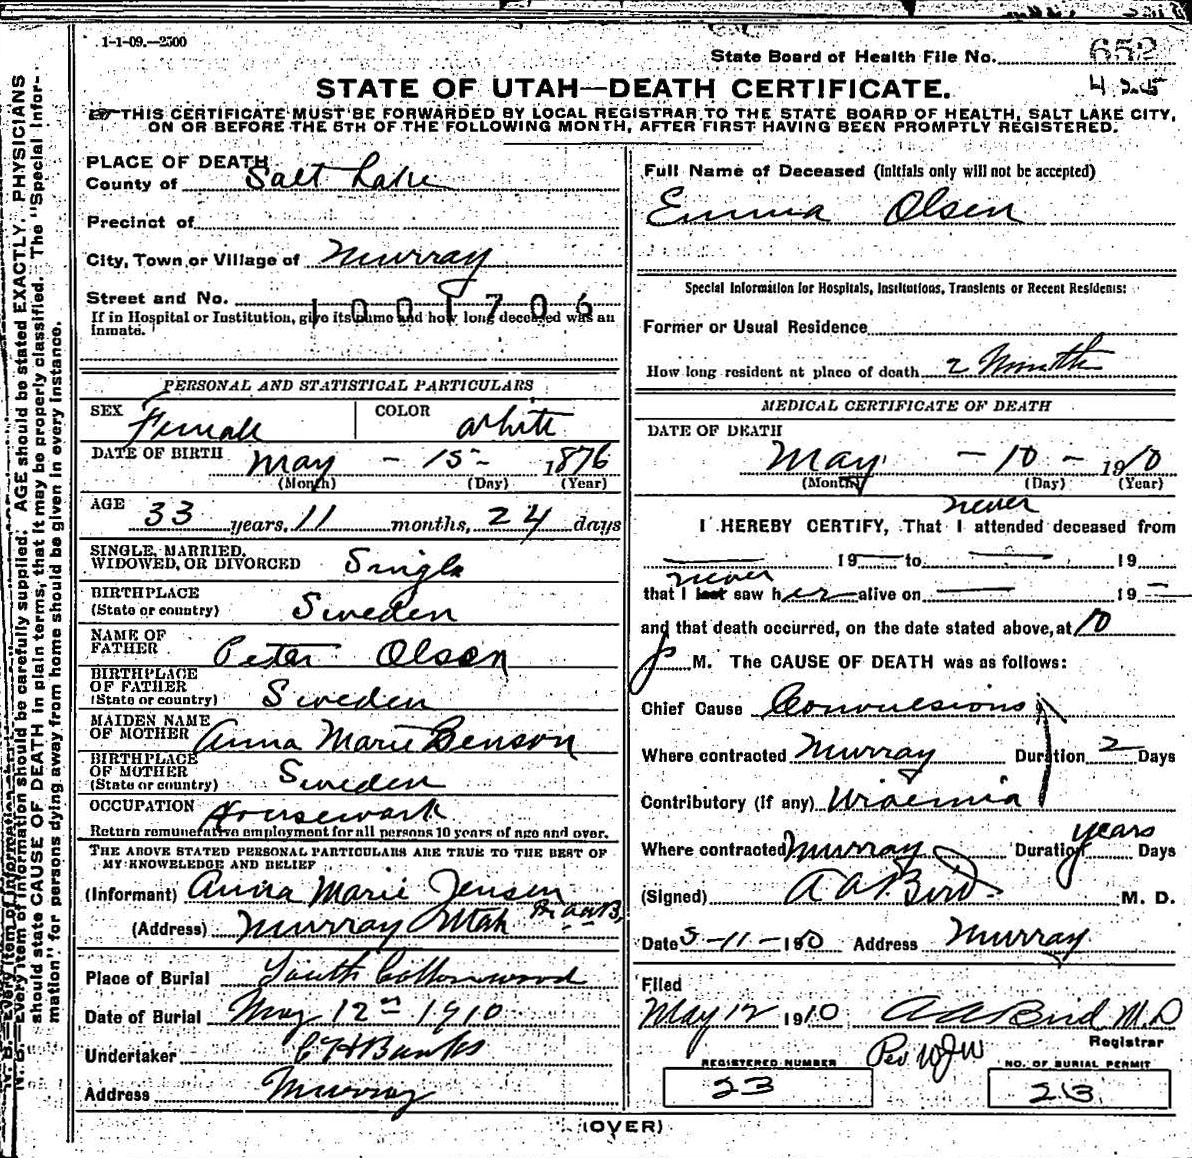 1-1-09.—2500
State Board of Health File No. 652
STATE OF UTAH—DEATH CERTIFICATE.
THIS CERTIFICATE MUST BE FORWARDED BY LOCAL REGISTRAR TO THE STATE BOARD OF HEALTH, SALT LAKE CITY,
ON OR BEFORE THE 5TH OF THE FOLLOWING MONTH, AFTER FIRST HAVING BEEN PROMPTLY REGISTERED.
PLACE OF DEATH
County of Salt Lake
Precinct of
City, Town or Village of Murray
Street and No.
1001706
If in Hospital or Institution, give its name and how long deceased was an
inmate.
PERSONAL AND STATISTICAL PARTICULARS
SEX Female
COLOR White
DATE OF BIRTH May - 15 - 1876
(Month) (Day) (Year)
AGE 33 years, 11 months, 24 days
SINGLE, MARRIED,
WIDOWED, OR DIVORCED Single
BIRTHPLACE
(State or country) Sweden
NAME OF
FATHER Peter Olsen
BIRTHPLACE
OF FATHER
(State or country) Sweden
MAIDEN NAME
OF MOTHER Anna Marie Benson
BIRTHPLACE
OF MOTHER
(State or country) Sweden
OCCUPATION Housework
Return remunerative employment for all persons 10 years of age and over.
THE ABOVE STATED PERSONAL PARTICULARS ARE TRUE TO THE BEST OF
MY KNOWLEDGE AND BELIEF
(Informant) Anna Marie Jensen
(Address) Murray Utah
Place of Burial South Cottonwood
Date of Burial May 12th 1910
Undertaker
Address Murray
Full Name of Deceased (initials only will not be accepted)
Emma Olsen
Special Information for Hospitals, Institutions, Transients or Recent Residents:
Former or Usual Residence
How long resident at place of death 2 Months
MEDICAL CERTIFICATE OF DEATH
DATE OF DEATH
May - 10 - 1910
(Month) (Day) (Year)
never
I HEREBY CERTIFY, That I attended deceased from
19 to 19
never
that I last saw her alive on 19
and that death occurred, on the date stated above, at 10
p M. The CAUSE OF DEATH was as follows:
Chief Cause Convulsions
Where contracted Murray Duration 2 Days
Contributory (if any) Uraemia
Where contracted Murray Duration years Days
(Signed) A A Bird M. D.
Date 5-11-1910 Address Murray
Filed
May 12 1910 A A Bird M.D
Registrar
Per WJW
REGISTERED NUMBER
23
NO. OF BURIAL PERMIT
23
(OVER)
N. B.—Every item of information should be carefully supplied. AGE should be stated EXACTLY. PHYSICIANS
should state CAUSE OF DEATH in plain terms, that it may be properly classified. The "Special Infor-
mation" for persons dying away from home should be given in every instance.